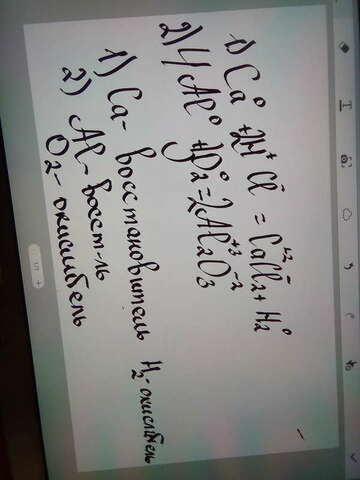 1) Ca⁰ + 2H⁺Cl⁻ = Ca⁺²Cl₂⁻ + H₂⁰
2) 4Al⁰ + 3O₂⁰ = 2Al₂⁺³O₃⁻²
1) Ca - восстановитель H₂ - окислитель
2) Al - восст-ль
O₂ - окислитель